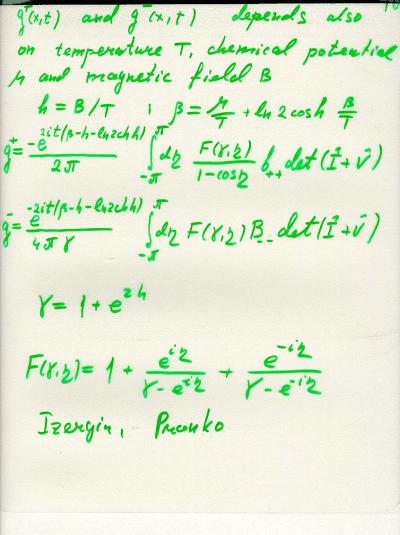 g⁺(x,t) and g⁻(x,t) depends also
on temperature T, chemical potential
μ and magnetic field B
h = B/T ; β = μ/T + ln 2 cosh B/T
g⁺ = -e^{2it(β-h-ln2chh)} / 2π ∫_{-π}^{π} dη F(γ,η) / 1-cosη b₊₊ det(Î+V̂)
g⁻ = e^{-2it(β-h-ln2chh)} / 4πγ ∫_{-π}^{π} dη F(γ,η) B₋₋ det(Î+V̂)
γ = 1 + e^{2h}
F(γ,η) = 1 + e^{iη} / γ - e^{iη} + e^{-iη} / γ - e^{-iη}
Izergin, Pronko